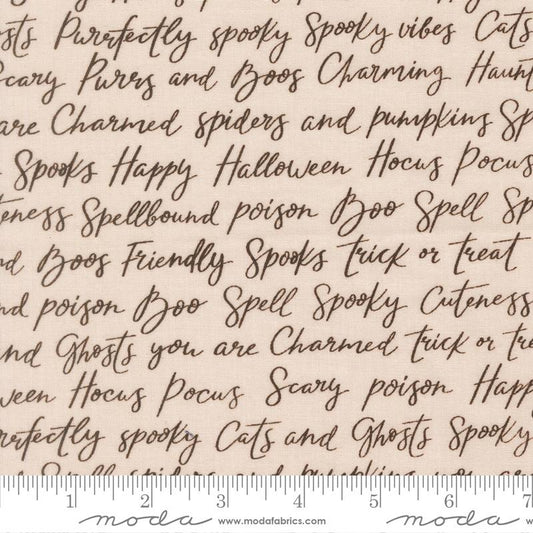 sts Purrfectly spooky Spooky vibes Cats
Scary Purrs and Boos Charming Haunt
are Charmed spiders and pumpkins Sp
Spooks Happy Halloween Hocus Pocus
teness Spellbound poison Boo Spell Sp
nd Boos Friendly Spooks trick or treat
nd poison Boo Spell Spooky Cuteness
and Ghosts you are Charmed trick or tre
ween Hocus Pocus Scary poison Happ
rrfectly spooky Cats and Ghosts Spooky
Spell spiders and pumpkins you are
1 2 3 4 5 6 7
moda www.modafabrics.com moda